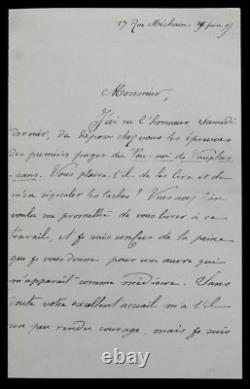 17 Rue Méchain. juin 95
Monsieur,
J'ai eu l'honneur, samedi
dernier, de déposer chez vous les épreuves
des premières pages du
sans. Vous plaira-t-il de les lire et de
m'en signaler les taches ? Vous avez bien
voulu me promettre de vous livrer à ce
travail, et je suis confus de la peine
que je vous donne pour un œuvre qui
m'apparaît comme médiocre. Sans
doute votre excellent accueil m'a-t-il
un peu rendu courage, mais je suis
© 122